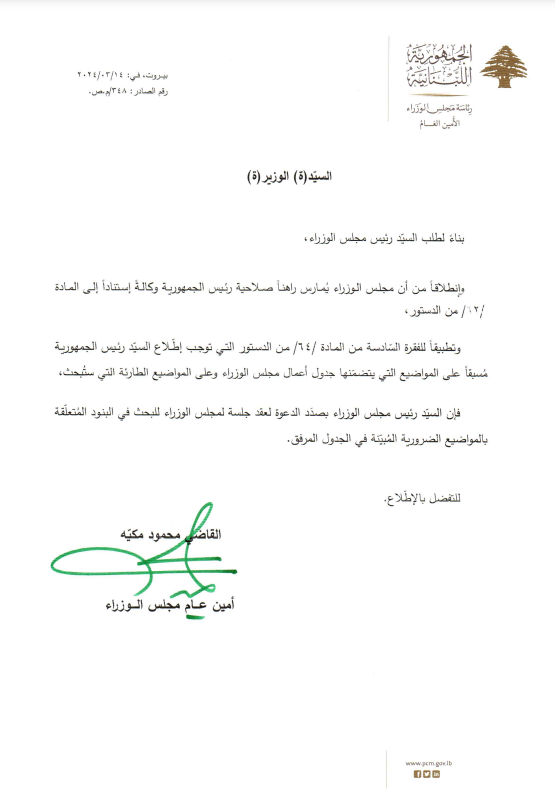 الجمهورية
اللبنانية
رئاسة مجلس الوزراء
الأمين العام
بيروت، في: ٢٠٢٤/٠٣/١٤
رقم الصادر: ٣٤٨/م.ص.
السيّد(ة) الوزير(ة)
بناءً لطلب السيّد رئيس مجلس الوزراء،
وإنطلاقاً من أن مجلس الوزراء يُمارس راهناً صلاحية رئيس الجمهورية وكالةً إستناداً إلى المادة
/٦٢/ من الدستور،
وتطبيقاً للفقرة السّادسة من المادة /٦٤/ من الدستور التي توجب إطّلاع السيّد رئيس الجمهورية
مُسبقاً على المواضيع التي يتضمّنها جدول أعمال مجلس الوزراء وعلى المواضيع الطارئة التي ستُبحث،
فإن السيّد رئيس مجلس الوزراء بصدَد الدعوة لعقد جلسة لمجلس الوزراء للبحث في البنود المُتعلّقة
بالمواضيع الضرورية المُبيّنة في الجدول المرفق.
للتفضل بالإطّلاع.
القاضي محمود مكيّه
أمين عـام مجلس الـوزراء
www.pcm.gov.lb